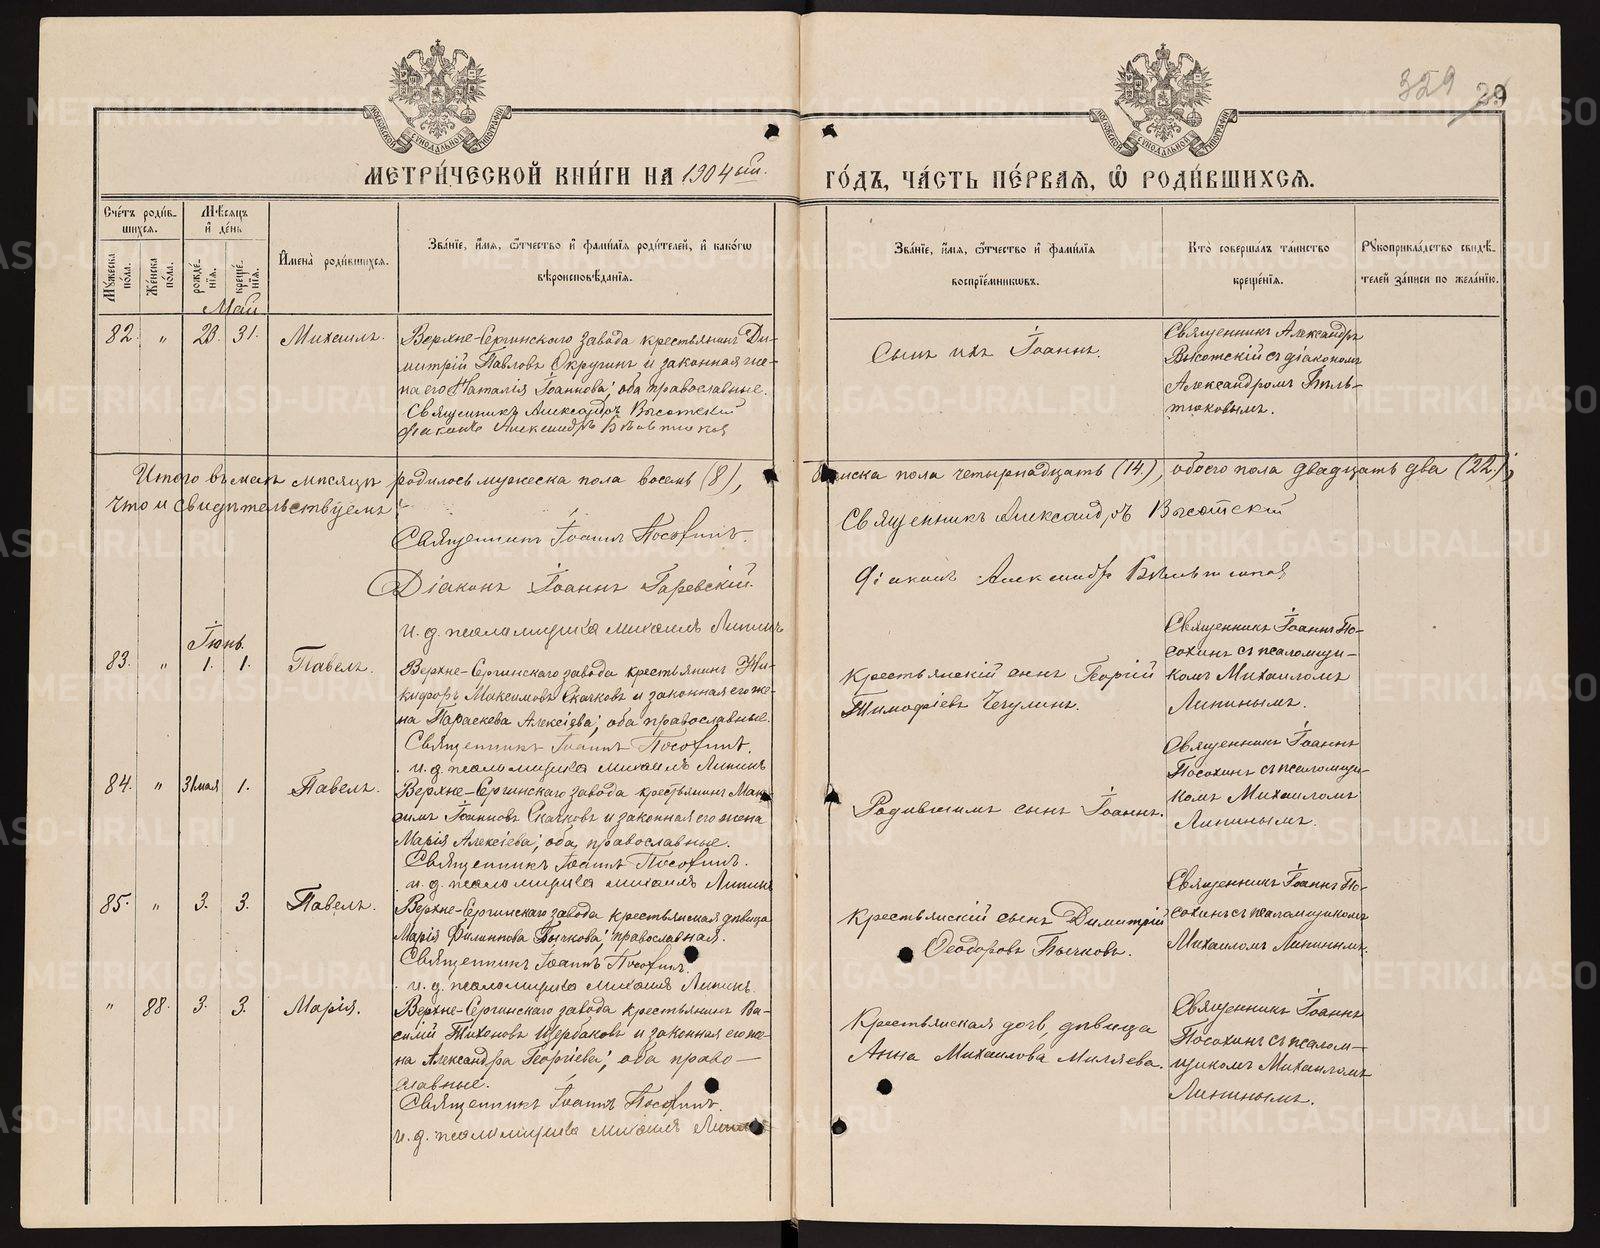 359 39
МОСКОВСКОЙ СѴНОДАЛЬНОЙ ТИПОГРАФІИ
МОСКОВСКОЙ СѴНОДАЛЬНОЙ ТИПОГРАФІИ
МЕТРИ́ЧЕСКОЙ КНИ́ГИ НА 1904ый.
ГО́ДЪ, ЧА́СТЬ ПЕ́РВАѦ, Ѽ РОДИ́ВШИХСѦ.
Сче́тъ роди́в-
шихсѧ.
Мѣ́сѧцъ
и҆ де́нь
Мꙋ́жеска
по́ла.
Же́нска
по́ла.
рожде́-
нїѧ.
креще́-
нїѧ.
И҆мена̀ роди́вшихсѧ.
Зва́нїе, и҆́мѧ, ѻ҆́тчество и҆ фами́лїѧ роди́телей, и҆ како́гѡ
вѣроисповѣ́данїѧ.
Зва́нїе, и҆́мѧ, ѻ҆́тчество и҆ фами́лїѧ
воспрїе́мникѡвъ.
Кто̀ соверша́лъ та́инство
креще́нїѧ.
Рꙋкоприкла́дство свидѣ́-
телей за́писи по жела́нїю.
Май
82. " 23. 31. Михаилъ.
Верхне-Сергинскаго завода крестьянинъ Ди-
митрій Павловъ Округинъ и законная же-
на его Наталія Іоаннова; оба православные.
Священникъ Александръ Высотскій
Діаконъ Александръ
Сынъ ихъ Іоаннъ.
Священникъ Александръ
Высотскій съ діакономъ
Александромъ
Итого въ маѣ мѣсяцѣ родилось мужеска пола восемь (8), женска пола четырнадцать (14), обоего пола двадцать два (22);
что и свидѣтельствуемъ:
Священникъ Іоаннъ Посохинъ.
Священникъ Александръ Высотскій
Діаконъ Іоаннъ Гаревскій.
Діаконъ Александръ
и. д. псаломщика Михаилъ Липинъ
Іюнь.
83. " 1. 1. Павелъ.
Верхне-Сергинскаго завода крестьянинъ Ни-
кифоръ Максимовъ Скачковъ и законная его же-
на Параскева Алексіева; оба православные.
Священникъ Іоаннъ Посохинъ.
и. д. псаломщика Михаилъ Липинъ
Крестьянскій сынъ Георгій
Тимофіевъ Чечулинъ.
Священникъ Іоаннъ По-
сохинъ съ псаломщи-
комъ Михаиломъ
Липинымъ.
84. " 31 мая 1. Павелъ.
Верхне-Сергинскаго завода крестьянинъ Мак-
симъ Іоанновъ Скачковъ и законная его жена
Марія Алексіева; оба православные.
Священникъ Іоаннъ Посохинъ.
и. д. псаломщика Михаилъ Липинъ
Родившимъ сынъ Іоаннъ.
Священникъ Іоаннъ
Посохинъ съ псаломщи-
комъ Михаиломъ
Липинымъ.
85. " 3. 3. Павелъ.
Верхне-Сергинскаго завода крестьянская дѣвица
Марія Филиппова Бычкова; православная.
Священникъ Іоаннъ Посохинъ.
и. д. псаломщика Михаилъ Липинъ.
Крестьянскій сынъ Димитрій
Ѳеодоровъ Бычковъ.
Священникъ Іоаннъ По-
сохинъ съ псаломщикомъ
Михаиломъ Липинымъ.
" 88. 3. 3. Марія.
Верхне-Сергинскаго завода крестьянинъ Ва-
силій Тихоновъ Щербаковъ и законная его же-
на Александра Георгіева; оба право-
славные.
Священникъ Іоаннъ Посохинъ.
и. д. псаломщика Михаилъ Липинъ
Крестьянская дочь, дѣвица
Анна Михаилова Миляева.
Священникъ Іоаннъ
Посохинъ съ псалом-
щикомъ Михаиломъ
Липинымъ.